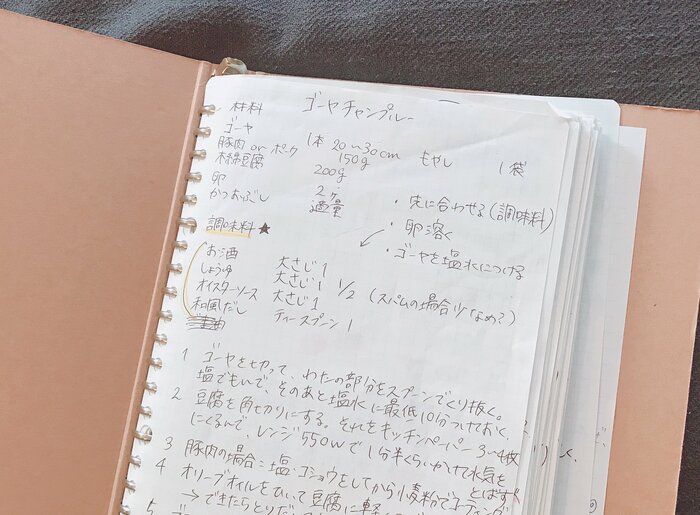 ゴーヤチャンプルー
材料
ゴーヤ 1本 20〜30cm もやし 1袋
豚肉 or ポーク 150g
木綿豆腐 200g
卵 2ヶ
かつおぶし 適量
・先に合わせる(調味料)
・卵溶く
・ゴーヤを塩水につける
調味料★
お酒 大さじ1
しょうゆ 大さじ1 1/2 (スパムの場合少なめ?)
オイスターソース 大さじ1
和風だし ティースプーン1
1 ゴーヤを切って、わたの部分をスプーンでくり抜く。
塩でもんで、そのあと塩水に最低10分つけておく。
2 豆腐を角切りにする。それをキッチンペーパー3〜4枚
にくるんで、レンジ550wで1分半くらいかけて水気を
とばす
3 豚肉の場合:塩・コショウをしてから小麦粉でコーティング
4 オリーブオイルをひいて豆腐に軽く
→できたらとりだ
5